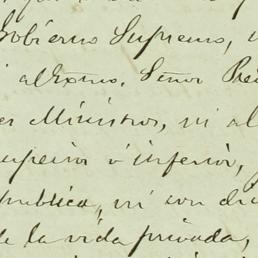 Gobierno Supremo,
al Exmo. Señor Pre
Ministros, ni al
superior ó inferior,
publica, ni con
de la vida privada,